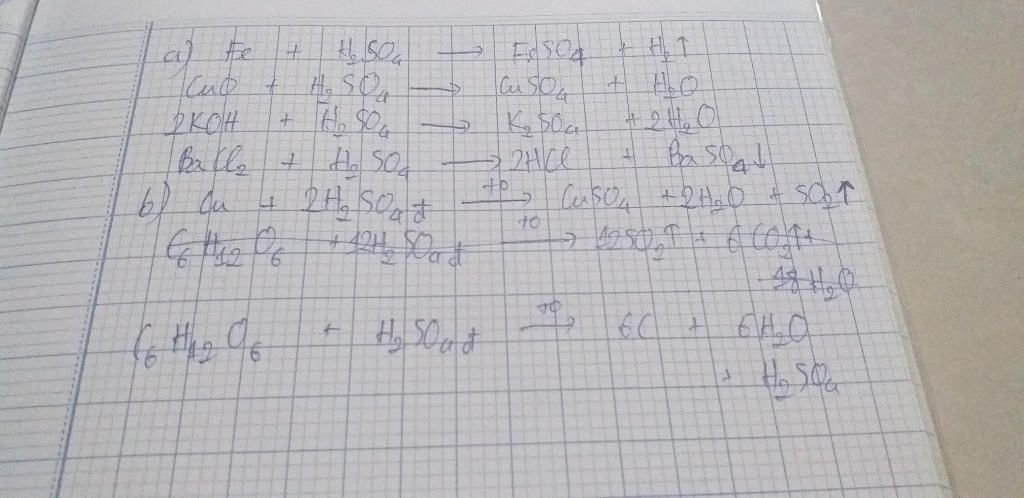 a) Fe + H₂SO₄ → FeSO₄ + H₂↑
CuO + H₂SO₄ → CuSO₄ + H₂O
2KOH + H₂SO₄ → K₂SO₄ + 2H₂O
BaCl₂ + H₂SO₄ → 2HCl + BaSO₄↓
b) Cu + 2H₂SO₄đ →(to) CuSO₄ + 2H₂O + SO₂↑
C₆H₁₂O₆ + 12H₂SO₄đ →(to) 12SO₂↑ + 6CO₂↑ +
18H₂O
C₆H₁₂O₆ + H₂SO₄đ →(to) 6C + 6H₂O
+ H₂SO₄